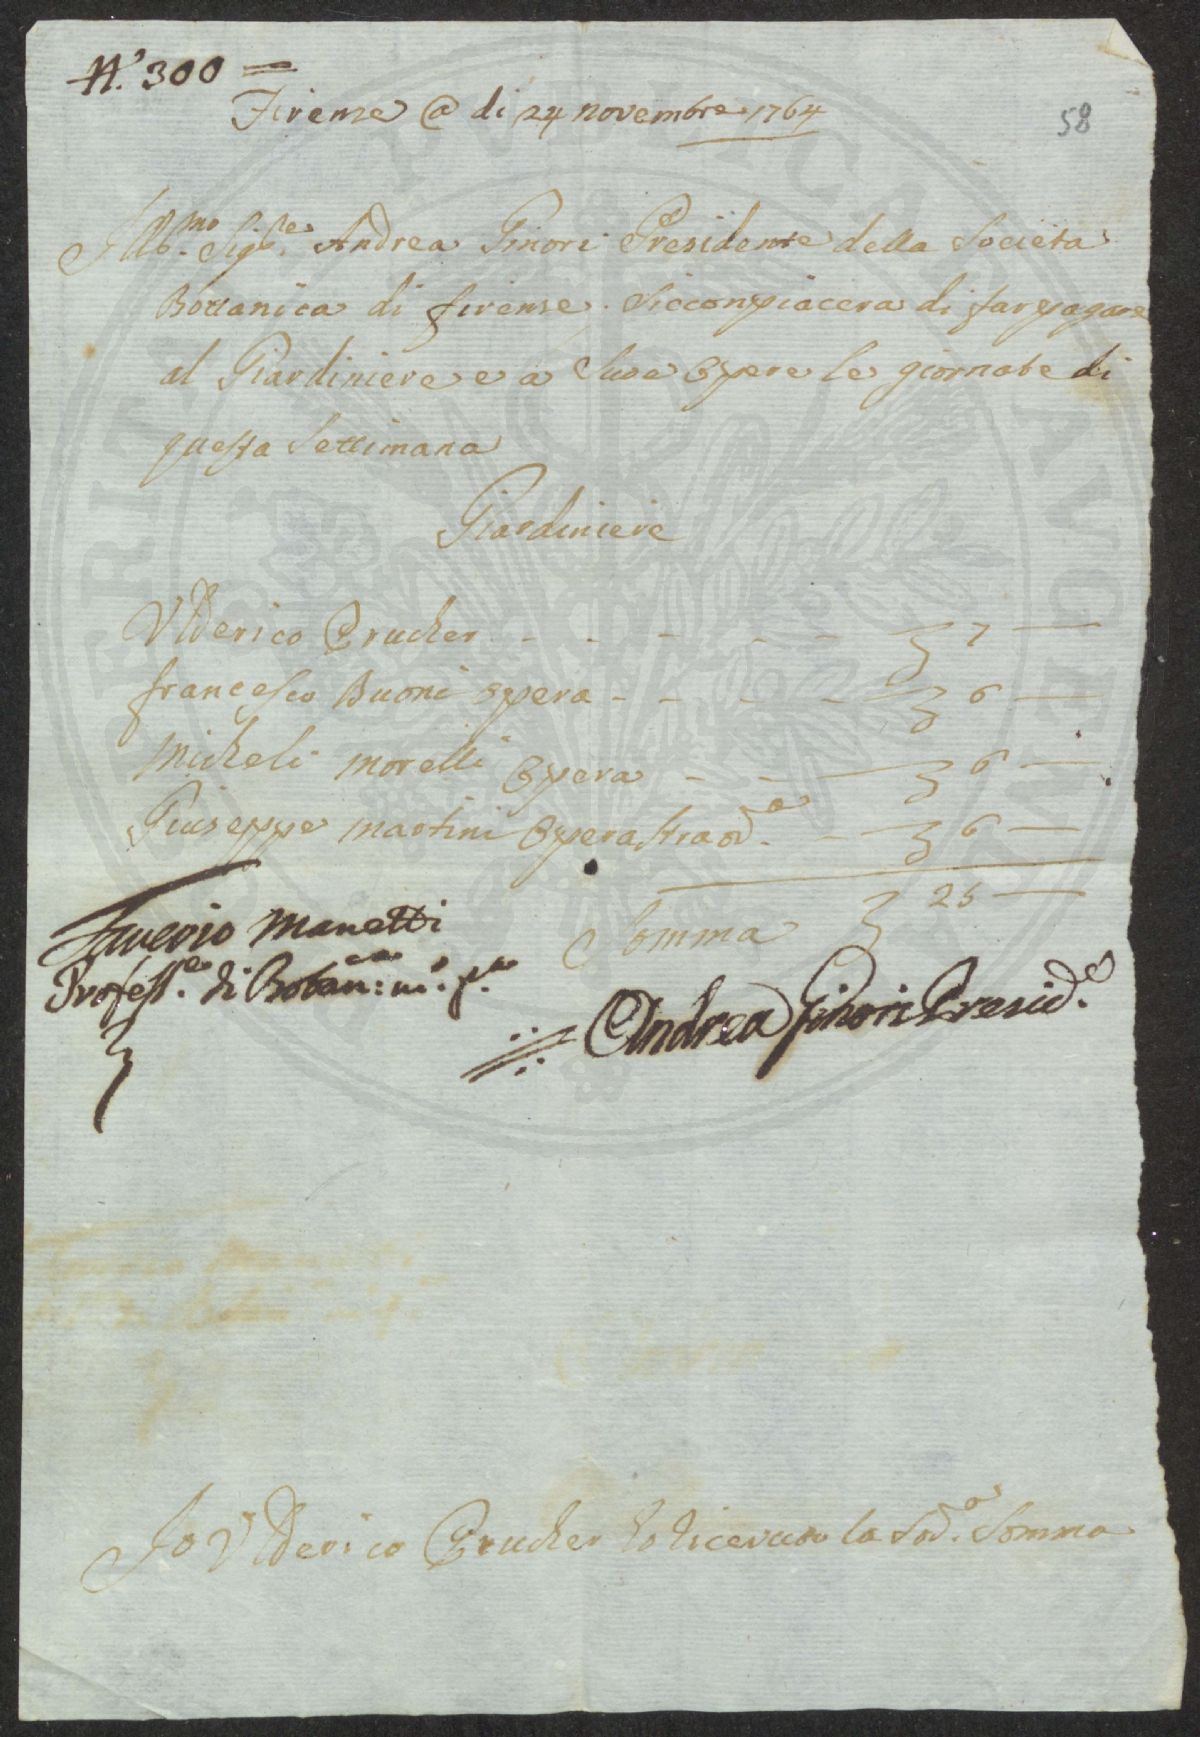 N.° 300 =
58
Firenze @ di 24 novembre 1764
Ill.mo Sig.re Andrea Ginori Presidente della Societa
Bottanica di firenze. Siccompiacera di far pagare
al Giardiniere e a Sue Opere le giornate di
questa Settimana
Giardiniere
Vlderico Prucher - - - - - 7 —
francesco Buoni opera - - - - 6 —
Micheli Morelli Opera - - 6 —
Giuseppe martini Opera straod.a - 6 —
Somma 25 —
Saverio Manetti
Profess.e di Botan.ca m.o p.a
Andrea Ginori Presid.e
Io Vlderico Prucher ho riceuuto la Sod.a Somma